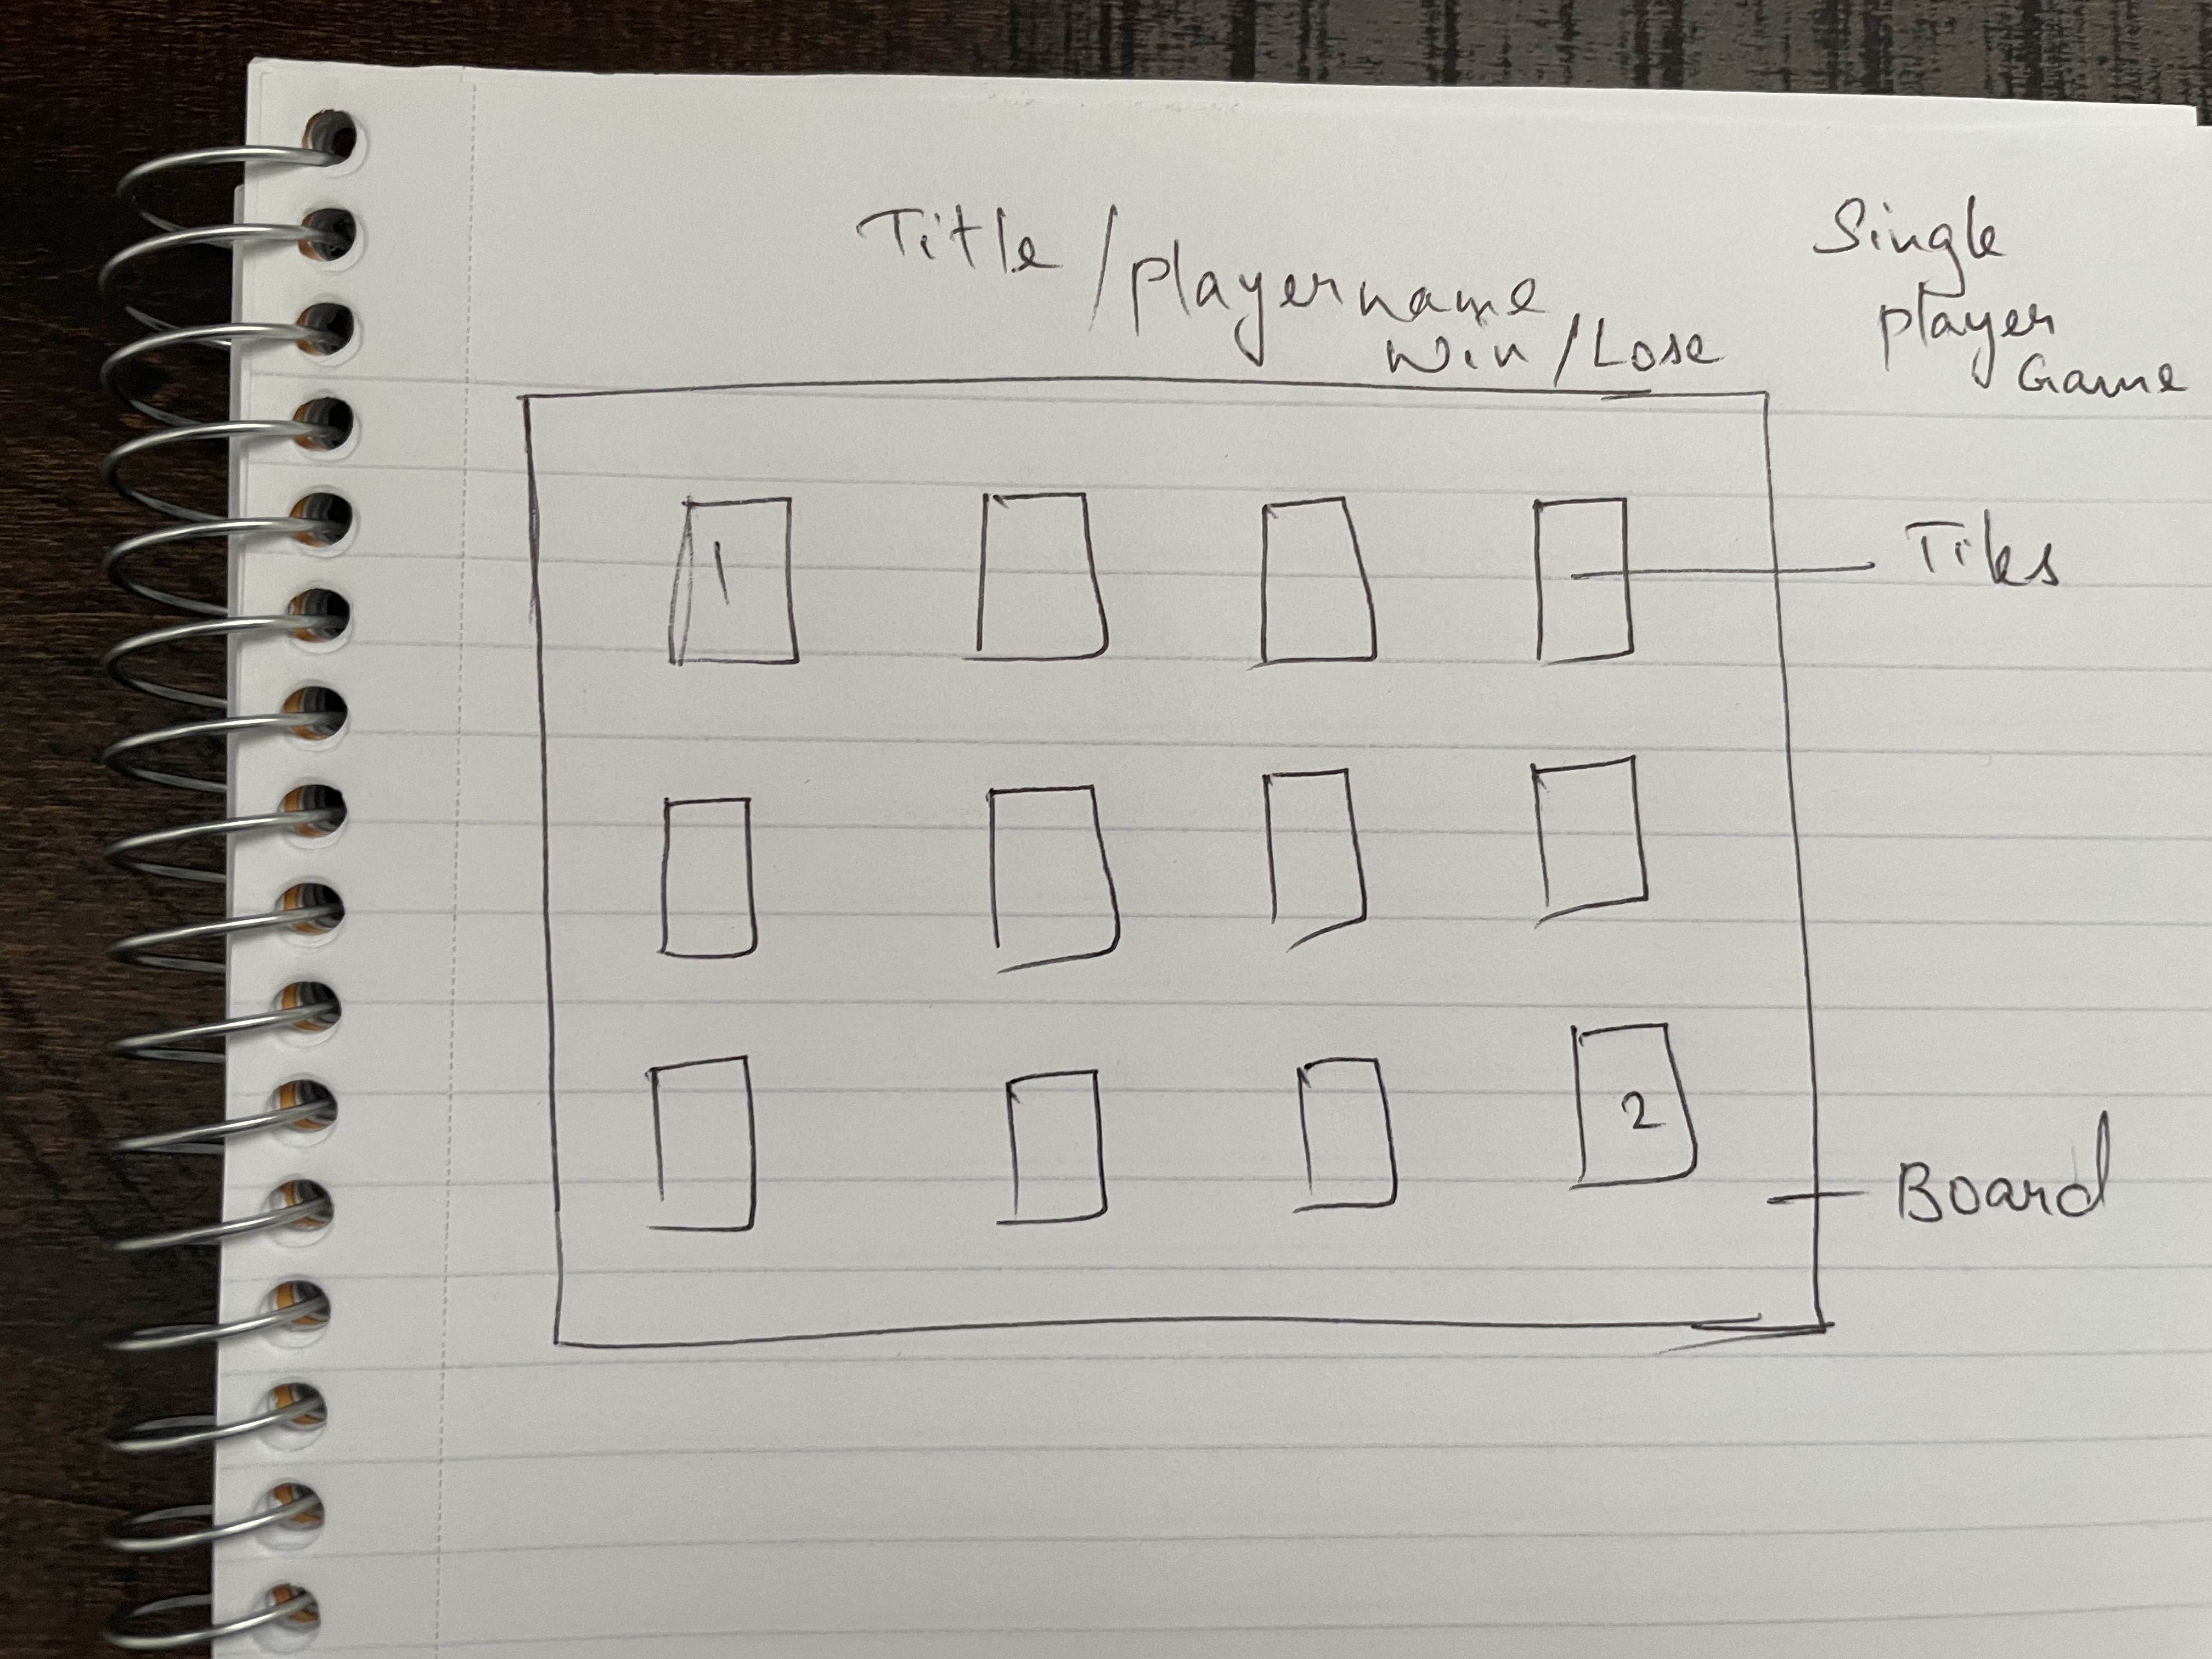 Title / Player name
Win / Lose
Single
Player
Game
1
Tiles
2
Board